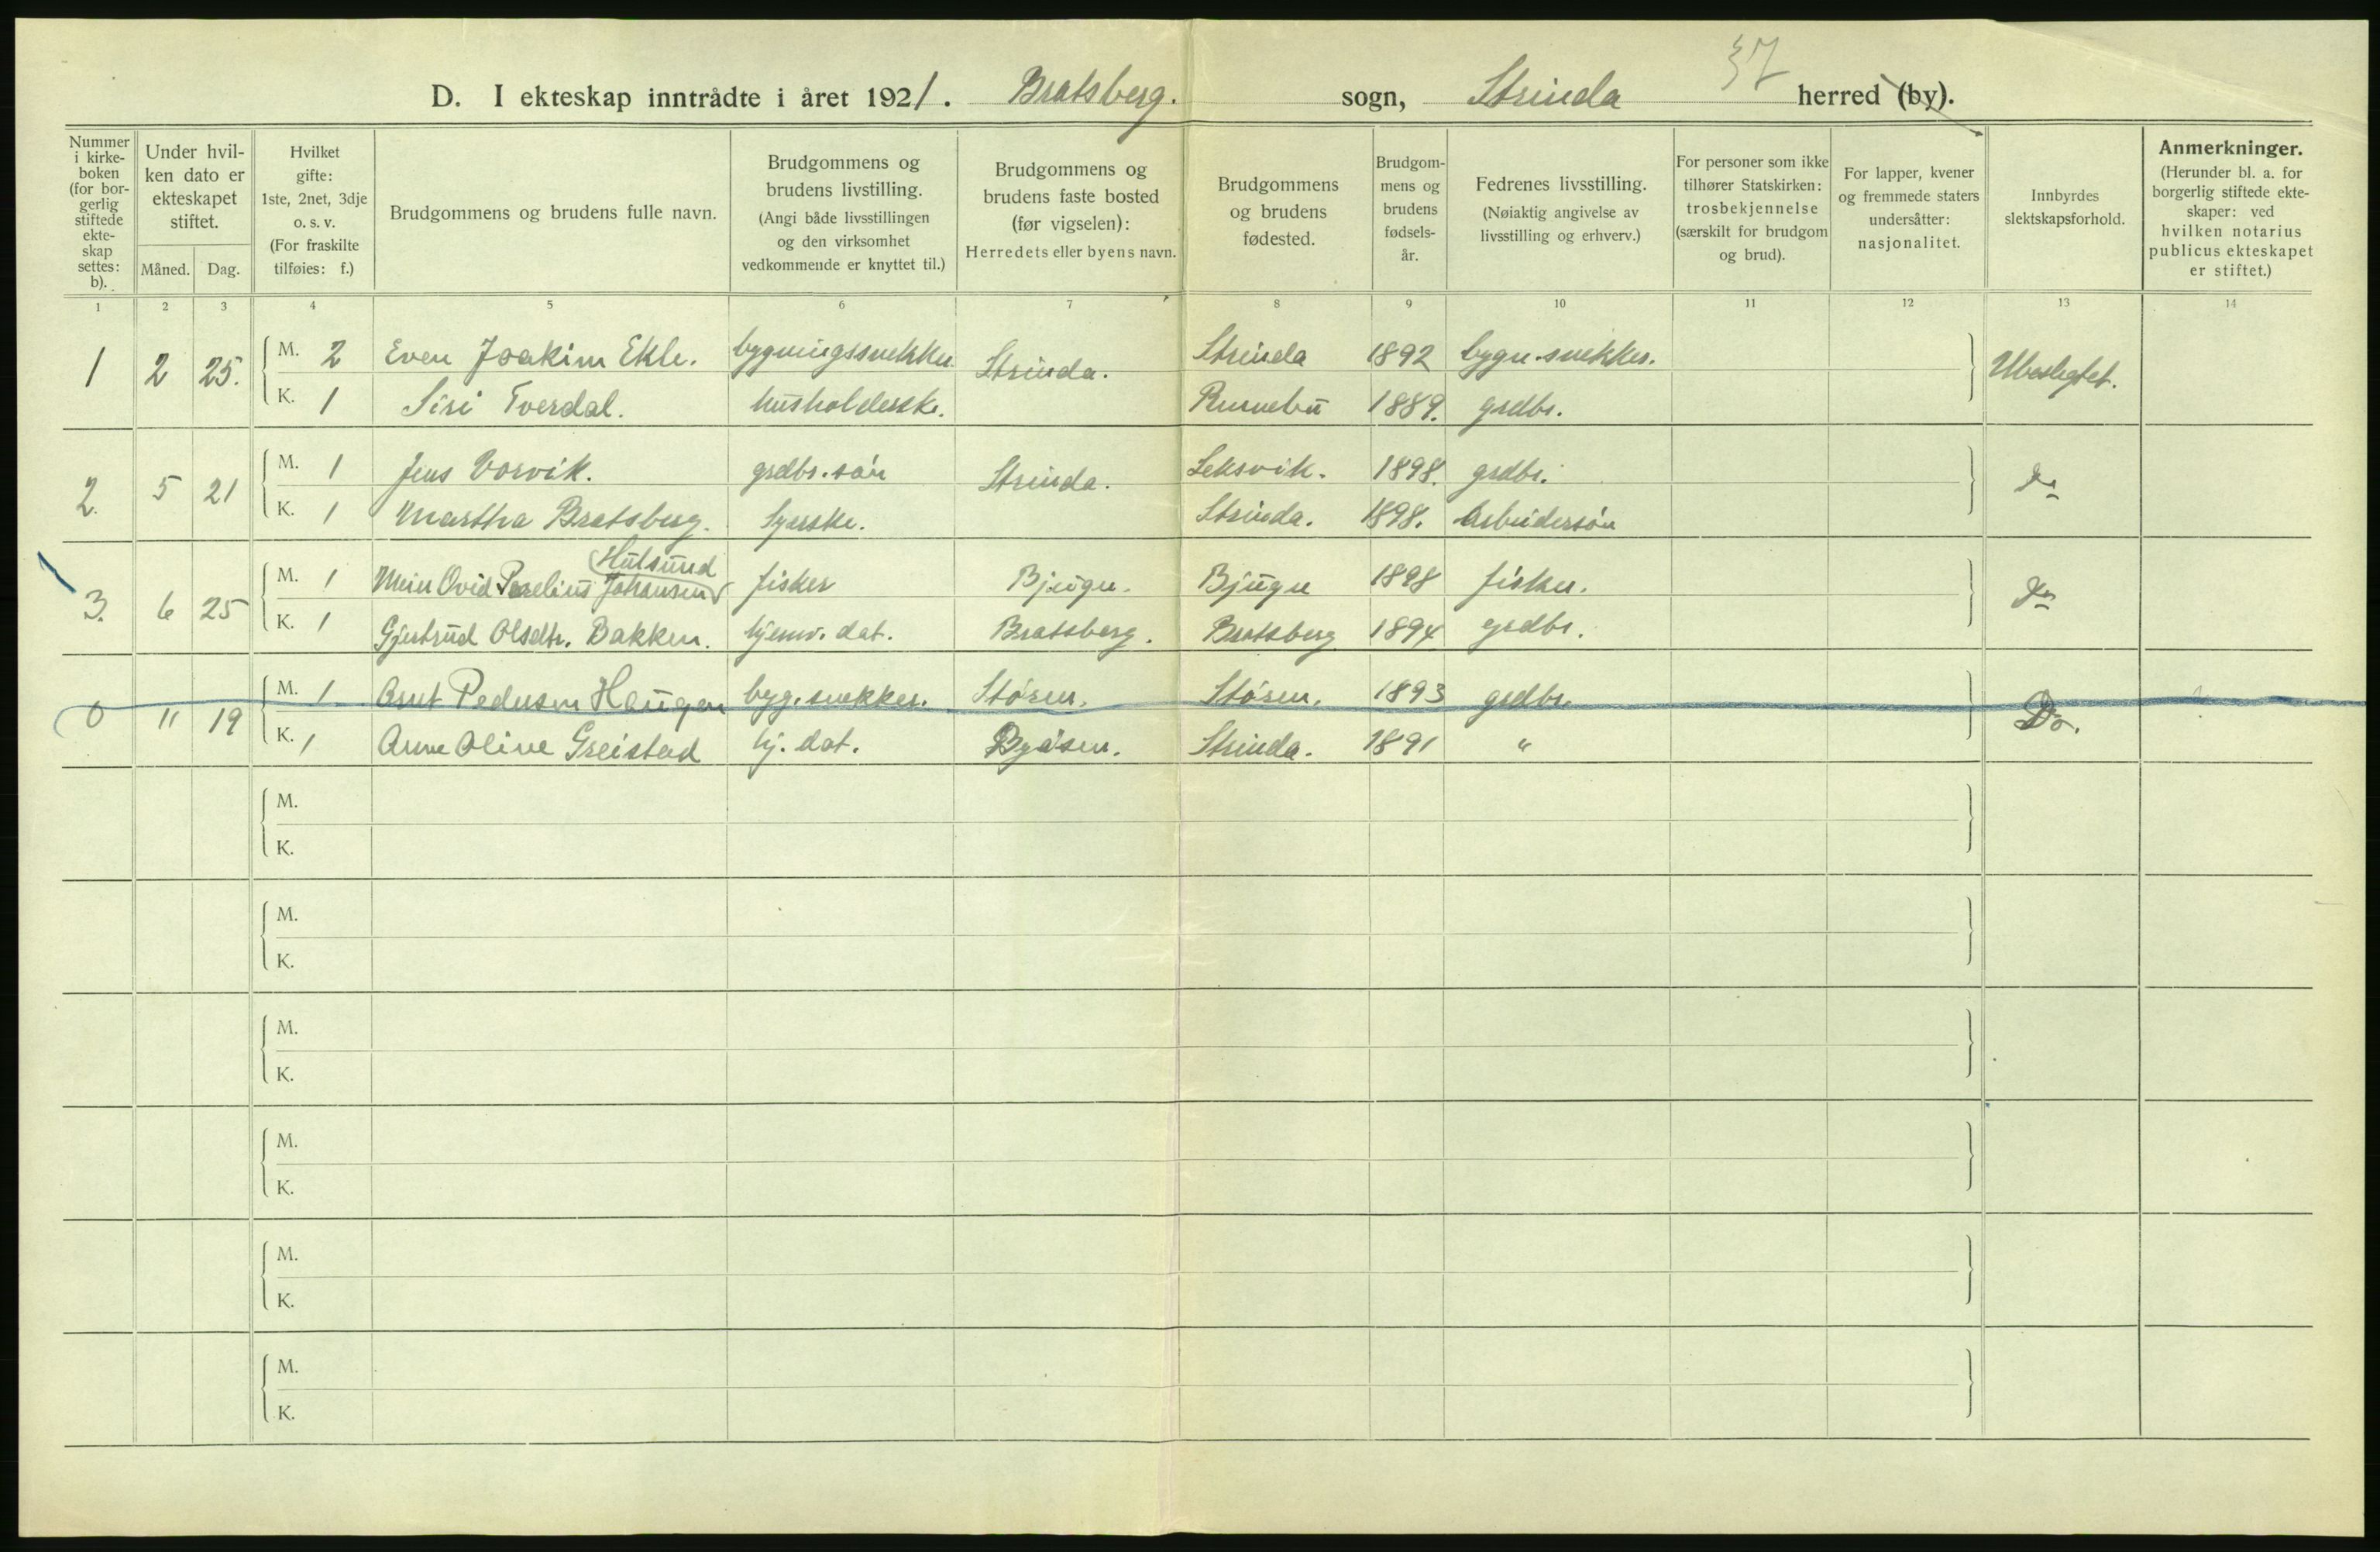 37
D. I ekteskap inntrådte i året 1921. Bratsberg. sogn, Strinda herred (by).
Nummer i kirke- boken (for bor- gerlig stiftede ekte- skap settes: b).
Under hvil- ken dato er ekteskapet stiftet.
Måned. Dag.
Hvilket gifte: 1ste, 2net, 3dje o. s. v. (For fraskilte tilføies: f.)
Brudgommens og brudens fulle navn.
Brudgommens og brudens livstilling. (Angi både livsstillingen og den virksomhet vedkommende er knyttet til.)
Brudgommens og brudens faste bosted (før vigselen): Herredets eller byens navn.
Brudgommens og brudens fødested.
Brudgom- mens og brudens fødsels- år.
Fedrenes livsstilling. (Nøiaktig angivelse av livsstilling og erhverv.)
For personer som ikke tilhører Statskirken: trosbekjennelse (særskilt for brudgom og brud).
For lapper, kvener og fremmede staters undersåtter: nasjonalitet.
Innbyrdes slektskapsforhold.
Anmerkninger. (Herunder bl. a. for borgerlig stiftede ekte- skaper: ved hvilken notarius publicus ekteskapet er stiftet.)
1 2 3 4 5 6 7 8 9 10 11 12 13 14
1 2 25. M. 2 Even Joakim Ekle. bygningssnekker. Strinda. Strinda 1892 bygn.snekker. Ubeslegtet.
K. 1 Siri Tverdal. husholderske. 1889. grdbr.
2. 5 21 M. 1 Jens Vorvik. grdbr.søn Strinda. Leksvik. 1898. grdbr. Do
K. 1 Martha Bratsberg. Syerske. Strinda. 1898. Arbeidersøn
Hulsund
3. 6 25 M. 1 Ovid Johansen fisker Bjugn. Bjugn 1898 fisker. Do
K. 1 Gjertrud Olsdtr. Bakken. hjemv. dat. Bratsberg. Bratsberg 1894 grdbr.
0 11 19 M. 1 Arnt Pedersen Haugen byg.snekker. Støren. Støren. 1893 grdbr. Do.
K. 1 Anne Oline Greistad hj. dat. Byåsen. Strinda. 1891 "
M.
K.
M.
K.
M.
K.
M.
K.
M.
K.
M.
K.